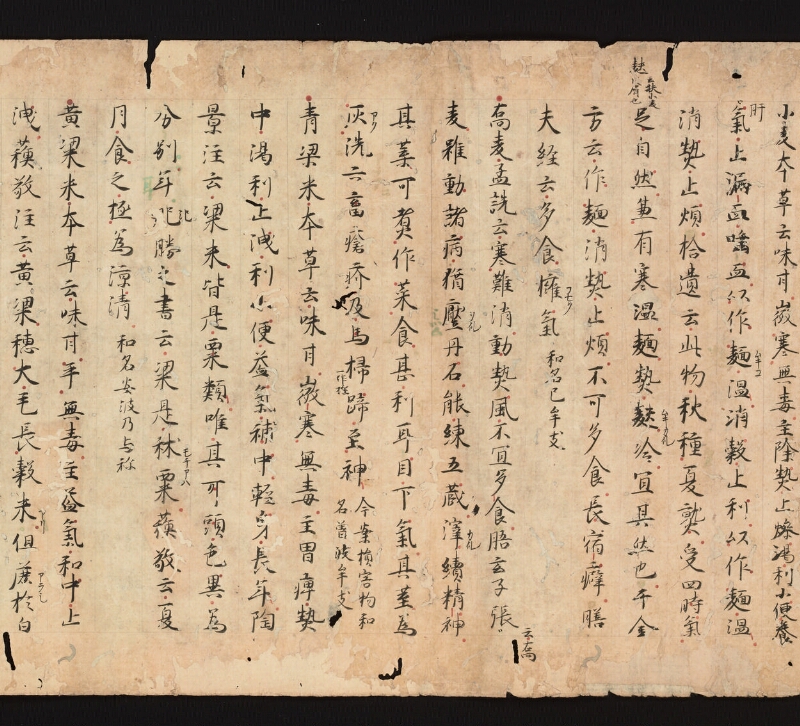 小麦本草云味甘微寒無毒主除熱止燥渇利小便養
肝氣止漏血唾血以作麵温消穀止利以作麵温
消熱止煩拾遺云此物秋種夏熟受四時氣
足自然兼有寒温麵熱麩冷宜其然也千金
方云作麵消熱止煩不可多食長宿癖膳
夫経云多食擁氣 和名己牟支
喬麦孟詵云寒難消動熱風不宜多食膳玄子張云喬
麦雖動諸病猶壓丹石能練五蔵滓續精神
其葉可煑作菜食甚利耳目下氣其莖為
灰洗六畜瘡疥及馬掃蹄至神 今案損害物和名曽波牟支
青梁米本草云味甘微寒無毒主胃痺熱
中渇利止洩利小便益氣補中軽身長年陶
景注云梁米皆是粟類唯其牙頭色異為
分別耳氾勝之書云梁是秫粟蘓敬云夏
月食之極為涼清 和名安波乃与祢
黄梁米本草云味甘平無毒主益氣和中止
洩蘓敬注云黄梁穂大毛長穀米但麁於白